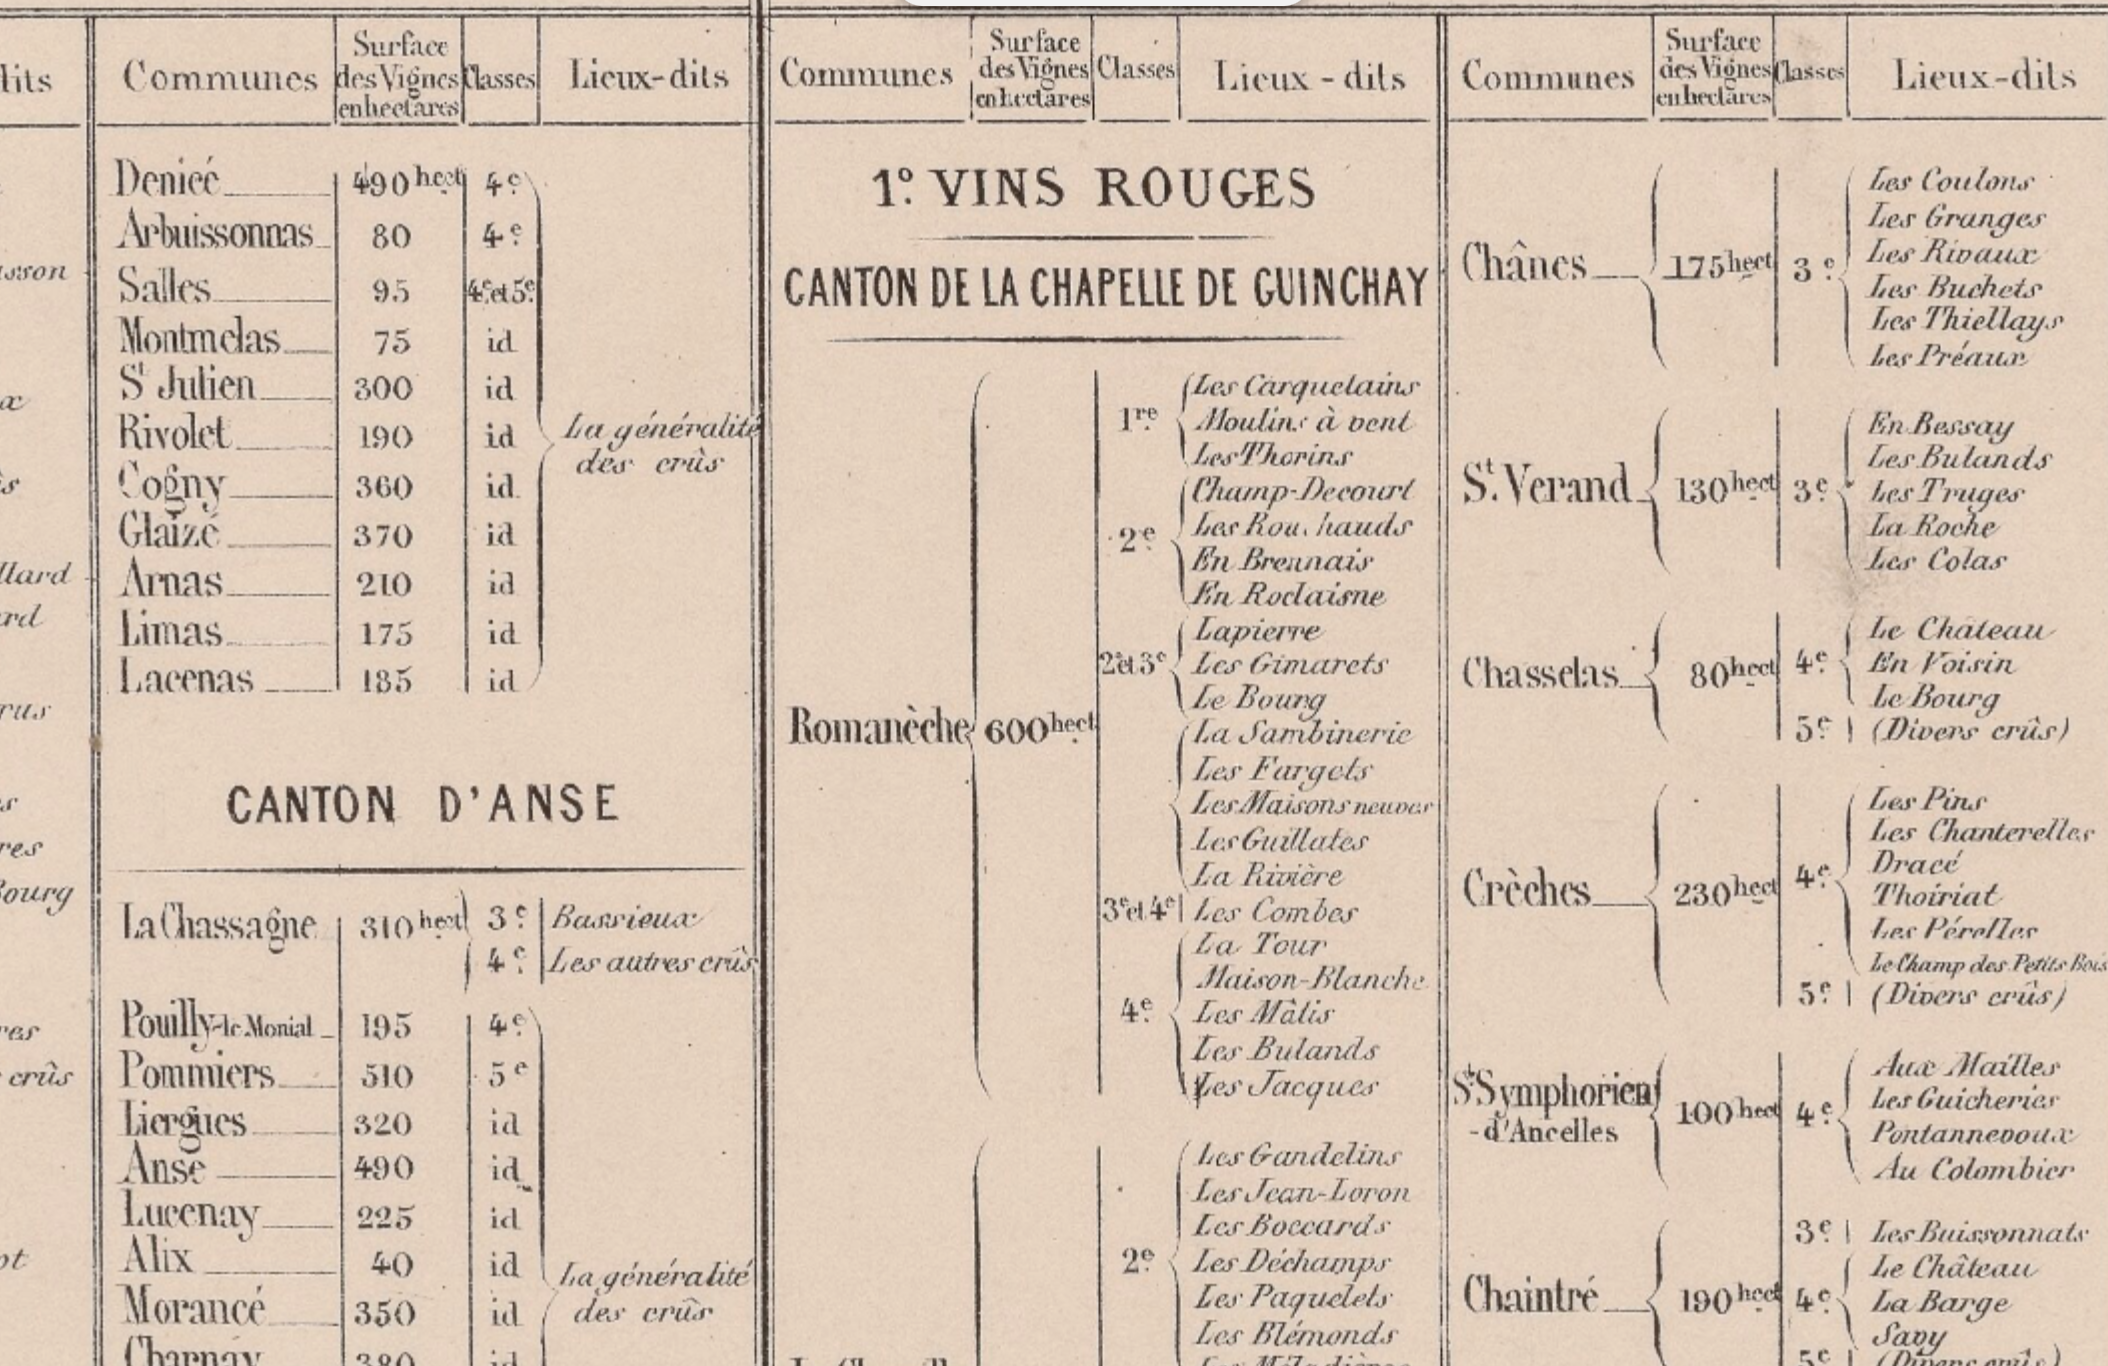 dits
sson
x
s
llard
ard
rus
s
res
Bourg
res
crûs
ot
Communes Surface des Vignes en hectares Classes Lieux-dits
Denicé 490 hect 4e
Arbuissonnas 80 4e
Salles 95 4e et 5e
Montmelas 75 id
St Julien 300 id
Rivolet 190 id
Cogny 360 id
Glaizé 370 id
Arnas 210 id
Limas 175 id
Lacenas 185 id
La généralité
des crûs
CANTON D'ANSE
La Chassagne 310 hect 3e Bassieux
4e Les autres crûs
Pouilly-le-Monial 195 4e
Pommiers 510 5e
Liergues 320 id
Anse 490 id
Lucenay 225 id
Alix 40 id
Morancé 350 id
Charnay 380 id
La généralité
des crûs
Communes Surface des Vignes en hectares Classes Lieux-dits
1º VINS ROUGES
CANTON DE LA CHAPELLE DE GUINCHAY
Romanèche 600 hect
1re Les Carquelains
Moulins à vent
Les Thorins
2e Champ-Decourt
Les Rouchauds
En Brennais
En Roclaisne
2e et 3e Lapierre
Les Gimarets
Le Bourg
La Sambinerie
Les Fargets
Les Maisons neuves
Les Guillates
La Rivière
3e et 4e Les Combes
4e La Tour
Maison-Blanche
Les Mâlis
Les Bulands
Les Jacques
2e Les Gandelins
Les Jean-Loron
Les Boccards
Les Déchamps
Les Paquelets
Les Blémonds
Communes Surface des Vignes en hectares Classes Lieux-dits
Chânes 175 hect 3e Les Coulons
Les Granges
Les Rivaux
Les Buchets
Les Thiellays
Les Préaux
St. Verand 130 hect 3e En Bessay
Les Bulands
Les Truges
La Roche
Les Colas
Chasselas 80 hect 4e Le Château
En Voisin
Le Bourg
5e (Divers crûs)
Crèches 230 hect 4e Les Pins
Les Chanterelles
Dracé
Thoiriat
Les Pérelles
Le Champ des Petits Bois
5e (Divers crûs)
St Symphorien
-d'Ancelles 100 hect 4e Aux Mailles
Les Guicheries
Pontannevoux
Au Colombier
Chaintré 190 hect 3e Les Buissonnats
4e Le Château
La Barge
Savy
5e (Divers crûs)